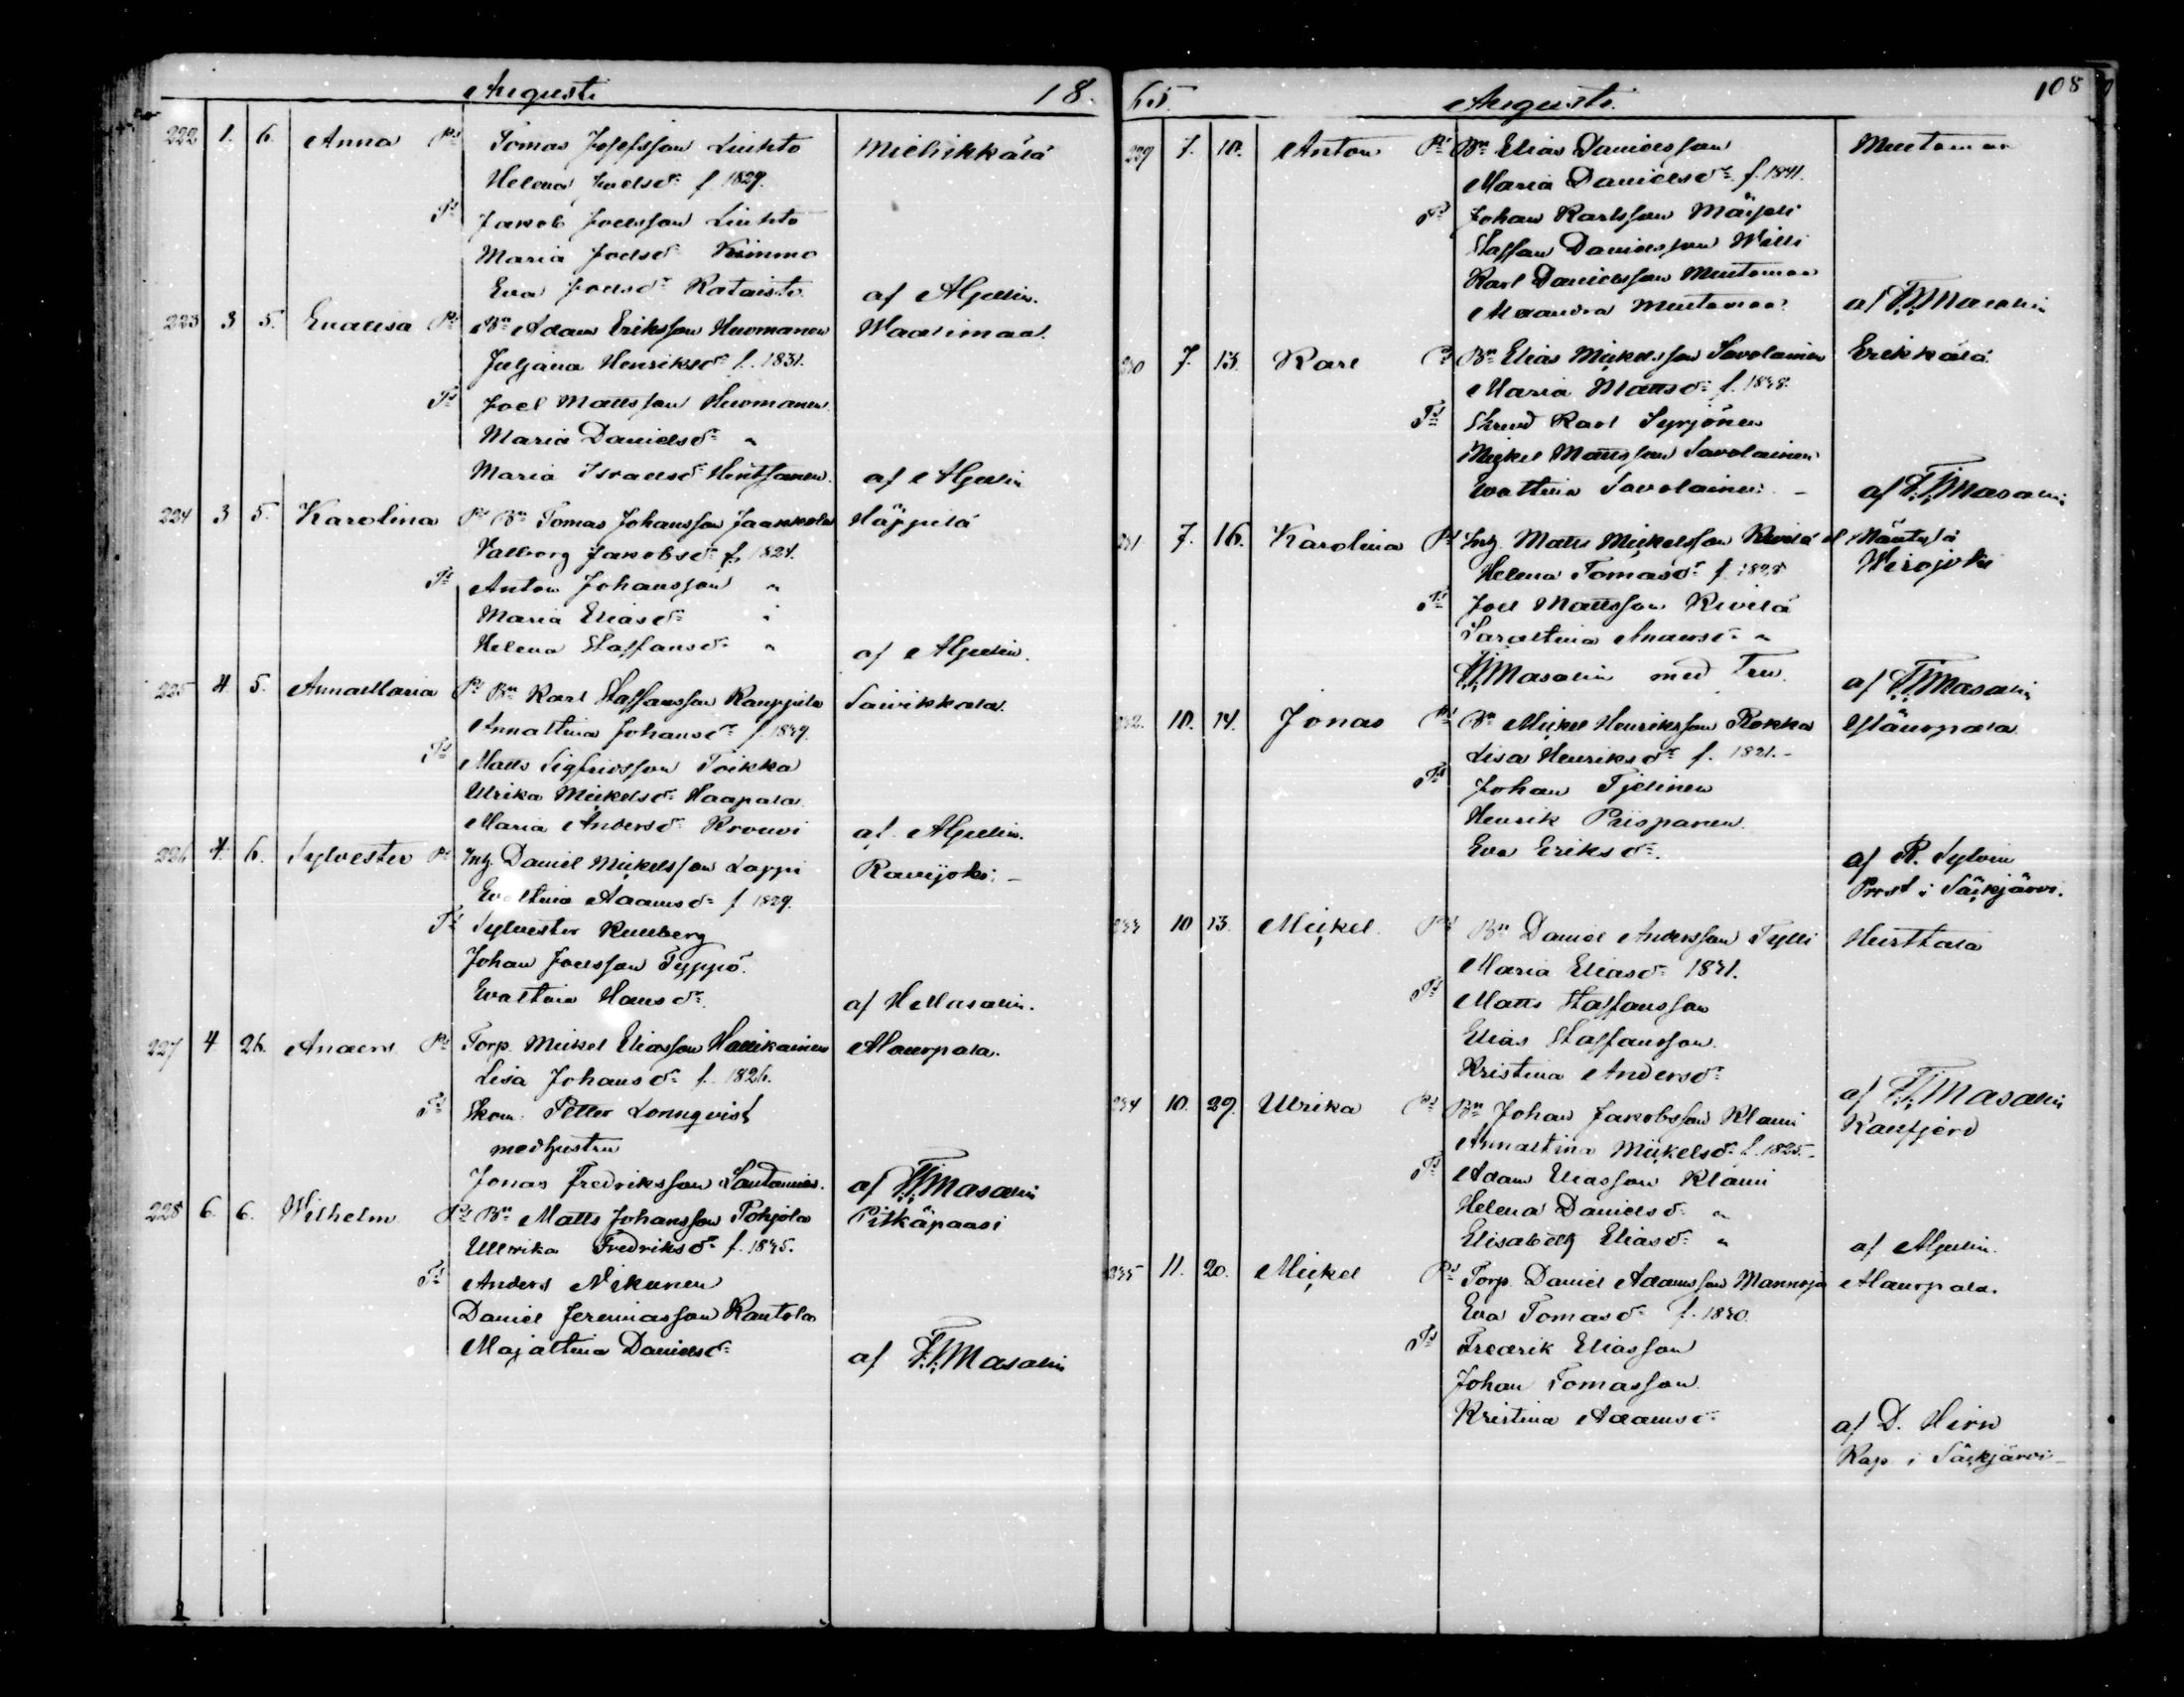 Augusti 18
222 1. 6. Anna Ps Tomas Josefsson Liuhto Miehikkälä
Helena Joelsdr f. 1829.
Ts Jakob Joelsson Liuhto
Maria Joelsdr Kimmo
Eva Joelsdr Rataisto af AGulin.
223 3 5. Evalisa Ps Bn Adam Eriksson Huomanen Waalimaa.
Juljana Henriksdr f. 1831.
Ts Joel Mattsson Huomanen
Maria Danielsdr "
Maria Israelsdr Hintsanen. af AGulin
224 3 5. Karolina Ps Bn Tomas Johansson Jaakkola Häppilä
Valborg Jakobsdr f. 1824.
Ts Anton Johansson "
Maria Eliasdr "
Helena Staffansdr " af AGulin.
225 4. 5. AnnaMaria Ps Bn Karl Staffansson Kauppila Saivikkala.
Annastina Johansdr f. 1839.
Ts Matts Sigfridsson Toikka
Ulrika Mickelsdr Haapala
Maria Andersdr Krouvi af. AGulin.
226 4. 6. Sylvester Ps Inh. Daniel Mickelsson Lappi Ravijoki. -
Evastina Adamsdr f 1829.
Ts Sylvester Kullberg
Johan Joelsson Typpö.
Evastina Hansdr. af HMasalin.
227 4 26. Anders Ps Torp. Mickel Eliasson Hallikainen Alaurpala.
Lisa Johansdr f. 1826.
Ts Skom. Petter Lönnqvist
med hustru
Jonas Fredriksson Santanies. af FFMasalin
228 6. 6. Wilhelm Ps Bn Matts Johansson Pohjola Pitkäpaasi
Ullrika Fredriksdr f. 1835.
Ts Anders Nikunen
Daniel Jeremiasson Rantola
Majastina Danielsdr af FFMasalin
65. Augusti. 108
229 7. 10. Anton Ps Bn Elias Danielsson Mustamaa
Maria Danielsdr f. 1841.
Ts Johan Karlsson Mäipeli
Staffan Danielsson Willi
Karl Danielsson Mustamaa
Maaandra Mustamaa af FFMasalin
230 7. 13. Karl Ps Bn Elias Mickelsson Savolainen Erikkälä
Maria Mattsdr f. 1838.
Ts Karl Syrjönen
Mickel Mattsson Savolainen
Evastina Savolainen - af FFMasalin
231 7. 16. Karolina Ps Inh. Matts Mickelsson Kivelä Mäntylä
Helena Tomasdr f. 1828 Wirojoki
Ts Joel Mattsson Kivelä
Sarastina Andersdr "
FFMasalin med Fru. af FFMasalin
232. 10. 14. Jonas Ps Bn Mickel Henriksson Rokka Yläurpala
Lisa Henriksdr f. 1821. -
Ts Johan Tjelinen
Henrik Piispanen.
Eva Eriksdr. af R. Sylvin
Prost i Säckjärvi.
233 10 13. Mickel. Ps Bn Daniel Andersson Tylli Hurttala
Maria Eliasdr 1841.
Ts Matts Staffansson
Elias Staffansson.
Kristina Andersdr af FFMasalin
234 10. 29. Ulrika Ps Bn Johan Jakobsson Klami Kallfjerd
Annastina Mickelsdr f. 1825. -
Ts Adam Eliasson Klami
Helena Danielsdr "
Elisabeth Eliasdr " af AGulin.
235 11. 20. Mickel Ps Torp. Daniel Adamsson Mannoja Alaurpala.
Eva Tomasdr f. 1830.
Ts Fredrik Eliasson
Johan Tomasson.
Kristina Adamsdr af D. Hirn
Kap i Säckjärvi -